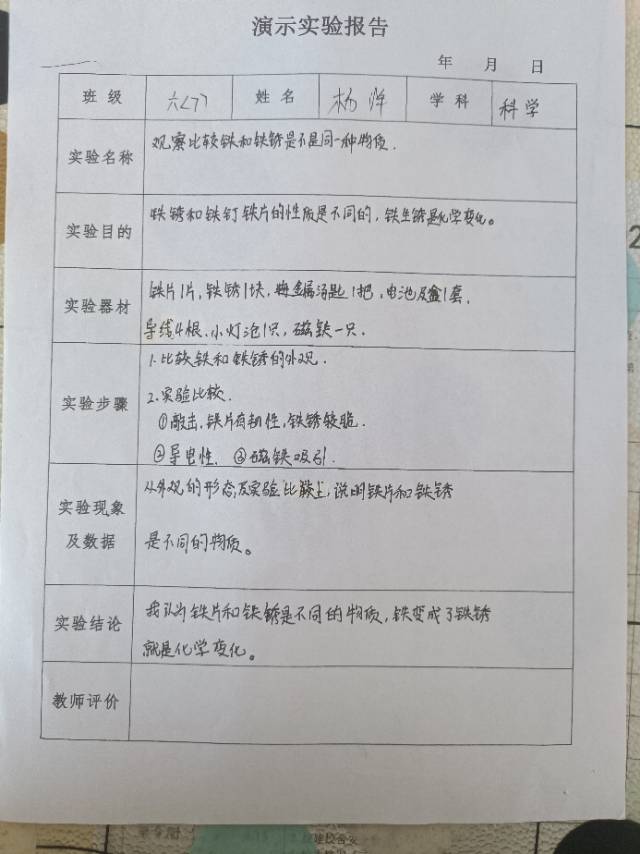 演示实验报告
年 月 日
班级 六<7> 姓名 杨洋 学科 科学
实验名称 观察比较铁和铁锈是不是同一种物质.
实验目的 铁锈和铁钉铁片的性质是不同的,铁生锈是化学变化。
实验器材 铁片1片,铁锈1块,金属汤匙1把,电池及盒1套,
导线4根、小灯泡1只,磁铁一只.
实验步骤 1.比较铁和铁锈的外观.
2.实验比较.
①敲击,铁片有韧性,铁锈较脆.
②导电性, ③磁铁吸引.
实验现象及数据 从外观的形态,及实验比较上,说明铁片和铁锈
是不同的物质。
实验结论 我认为铁片和铁锈是不同的物质,铁变成了铁锈
就是化学变化。
教师评价